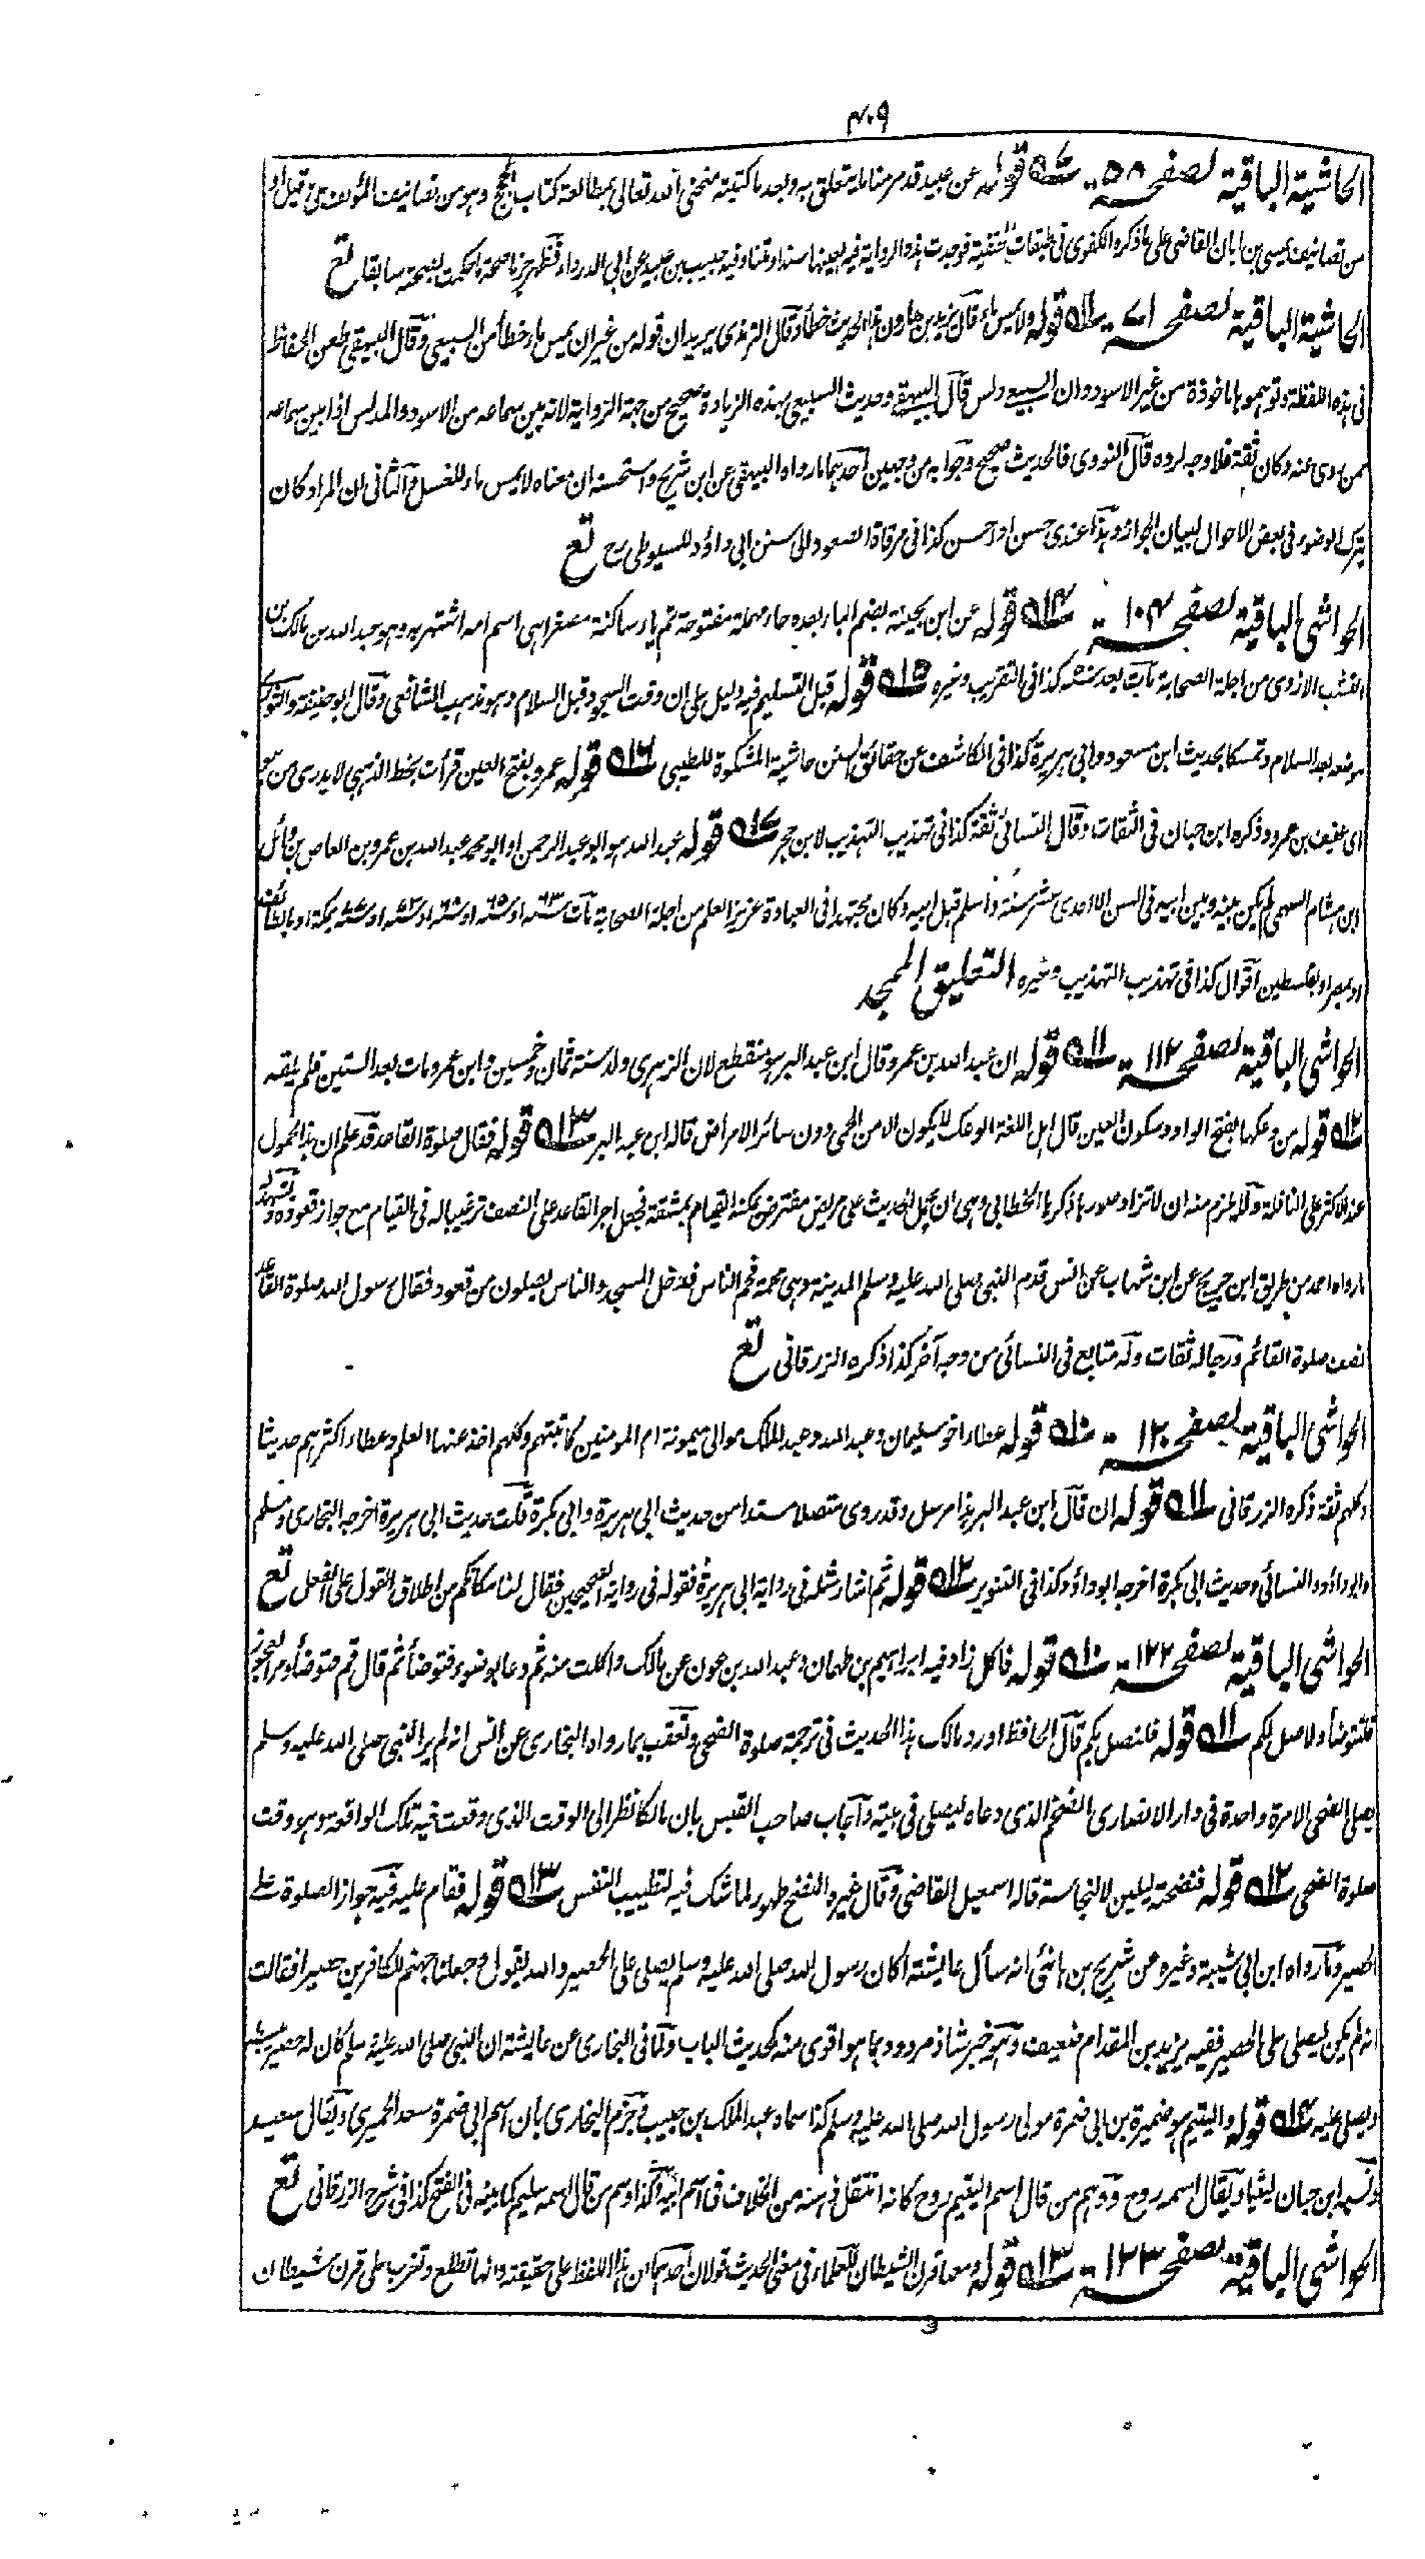 ٤٠٩
الحاشية الباقية لصفحة ٥٨ - ٧ قوله عن عبيد قد مر منا ما يتعلق به وبعد ما كتبته منحنى الله تعالى بمطالعة كتاب الحج وهو من تصانيف المؤلف قيل او
من تصانيف عيسى بن ابان القاضى على ما ذكره الكفوى فى طبقات الحنفية فوجدت هذه الرواية فيه بعينها سندا ومتنا وفيه حبيب بن عبيد عن ابى الدرداء فظهر جزما صحة ما حكمت بصحته سابقا تع
الحاشية الباقية لصفحة ٧١ - ١١ قوله ولا يمس ماء قال يزيد بن هارون هذا الحديث خطأ وقال الترمذى يريد ان قوله من غير ان يمس ماء خطأ من السبيعى وقال البيهقى طعن الحفاظ
فى هذه اللفظة وتوهموها ماخوذة من غير الاسود وان السبيعى دلس قال البيهقى وحديث السبيعى بهذه الزيادة صحيح من جهة الرواية لانه بين سماعه من الاسود والمدلس اذا بين سماعه
ممن روى عنه وكان ثقة فلا وجه لرده قال النووى فالحديث صحيح وجوابه من وجهين احدهما ما رواه البيهقى عن ابن شريح واستحسنه ان معناه لا يمس ماء للغسل والثانى ان المراد كان
يترك الوضوء فى بعض الاحوال لبيان الجواز وهذا عندى حسن او احسن كذا فى مرقاة الصعود الى سنن ابى داؤد للسيوطى رح تع
الحواشى الباقية لصفحة ١٠٤ - ١٤ قوله عن ابن بحينة بضم الباء بعده حاء مهملة مفتوحة ثم ياء ساكنة مصغرا هى اسم امه اشتهر به وهو عبد الله بن مالك بن
القشب الازدى من اجلة الصحابة مات بعد سنة كذا فى التقريب وغيره ١٥ قوله قبل التسليم فيه دليل على ان وقت السجود قبل السلام وهو مذهب الشافعى وقال ابو حنيفة والثورى
موضعه بعد السلام وتمسكا بحديث ابن مسعود وابى هريرة كذا فى الكاشف عن حقائق السنن حاشية المشكوة للطيبى ١٦ قوله عمرو بفتح العين قرأت بخط الذهبى لا يدرى من هو
اى عفيف بن عمرو وذكره ابن حبان فى الثقات وقال النسائى ثقة كذا فى تهذيب التهذيب لابن حجر ١٧ قوله عبد الله هو ابو عبد الرحمن او ابو محمد عبد الله بن عمرو بن العاص بن وائل
ابن هشام السهمى لم يكن بينه وبين ابيه فى السن الا احدى عشر سنة واسلم قبل ابيه وكان مجتهدا فى العبادة عزيز العلم من اجلة الصحابة مات سنة ٦٣ او سنة ٦٥ او سنة ٦٨ او سنة ٧٣ او سنة ٧٧ بمكة او بالطائف
او بمصر او بفلسطين اقوال كذا فى تهذيب التهذيب وغيره التعليق الممجد
الحواشى الباقية لصفحة ١١٢ - ١١ قوله ان عبد الله بن عمرو قال ابن عبد البر هو منقطع لان الزهرى ولد سنة ثمان وخمسين وابن عمرو مات بعد الستين فلم يلقه
١٢ قوله من وعكها بفتح الواو وسكون العين قال اهل اللغة الوعك لا يكون الا من الحمى دون سائر الامراض قاله ابن عبد البر ١٣ قوله فقال صلوة القاعد قد علم ان هذا محمول
عند الاكثر على النافلة ولا يلزم منه ان لا تزاد صور ما ذكرها الخطابى وهى ان يحمل الحديث على مريض مفترض يمكنه القيام بمشقة فجعل اجر القاعد على النصف ترغيبا له فى القيام مع جواز قعوده ويشهد له
ما رواه احمد من طريق ابن جريج عن ابن شهاب عن انس قدم النبى صلى الله عليه وسلم المدينة وهى محمة فحم الناس فدخل المسجد والناس يصلون من قعود فقال رسول الله صلوة القاعد
نصف صلوة القائم ورجاله ثقات وله متابع فى النسائى من وجه آخر كذا ذكره الزرقانى تع
الحواشى الباقية لصفحة ١٢٠ - ١٠ قوله عطاء اخو سليمان وعبد الله وعبد الملك موالى ميمونة ام المومنين كاتبتهم وكلهم اخذ عنها العلم وعطاء اكثرهم حديثا
وكلهم ثقة ذكره الزرقانى ١١ قوله ان قال ابن عبد البر هذا مرسل وقد روى متصلا مسندا من حديث ابى هريرة وابى بكرة قلت حديث ابى هريرة اخرجه البخارى ومسلم
وابو داؤد والنسائى وحديث ابى بكرة اخرجه ابو داؤد كذا فى التنوير ١٢ قوله ثم اشار مثله فى رواية ابى هريرة فقوله فى رواية الصحيحين فقال لنا مكانكم من اطلاق القول على الفعل تع
الحواشى الباقية لصفحة ١٢٢ - ١٠ قوله فاكل زاد فيه ابراهيم بن طهمان وعبد الله بن عون عن مالك واكلت منه ثم دعا بوضوء فتوضأ ثم قال قم فتوضأ ومر العجوز
فلتتوضأ ولاصل لكم ١١ قوله فلنصل بكم قال الحافظ اورد مالك هذا الحديث فى ترجمة صلوة الضحى وتعقب بما رواه البخارى عن انس انه لم ير النبى صلى الله عليه وسلم
يصلى الضحى الا مرة واحدة فى دار الانصارى الضخم الذى دعاه ليصلى فى بيته واجاب صاحب القبس بان مالكا نظر الى الوقت الذى وقعت فيه تلك الواقعة وهو وقت
صلوة الضحى ١٢ قوله فنضحته ليلين لا لنجاسة قاله اسمعيل القاضى وقال غيره النضح طهور لما شك فيه لتطييب النفس ١٣ قوله فقام عليه فيه جواز الصلوة على
الحصير وما رواه ابن ابى شيبة وغيره عن شريح بن هانئ انه سأل عائشة اكان رسول الله صلى الله عليه وسلم يصلى على الحصير والله يقول وجعلنا جهنم للكافرين حصيرا فقالت
انه لم يكن يصلى على الحصير ففيه يزيد بن المقدام ضعيف وهو خبر شاذ مردود بما هو اقوى منه كحديث الباب ولما فى البخارى عن عائشة ان النبى صلى الله عليه وسلم كان له حصير يبسطه
ويصلى عليه ١٤ قوله واليتيم هو ضميرة بن ابى ضمرة مولى رسول الله صلى الله عليه وسلم كذا سماه عبد الملك بن حبيب وجزم البخارى بان اسم ابى ضمرة سعد الحميرى ويقال سعيد
ونسبه ابن حبان ليثيا ويقال اسمه روح ووهم من قال اسم اليتيم روح كانه انتقل ذهنه من الخلاف فى اسم ابيه وكذا وهم من قال اسمه سليم كما بينه فى الفتح كذا فى شرح الزرقانى تع
الحواشى الباقية لصفحة ١٢٣ - ١٣ قوله ومعها قرن الشيطان للعلماء فى معنى الحديث قولان احدهما ان هذا اللفظ على حقيقته وانها تطلع وتغرب على قرن شيطان